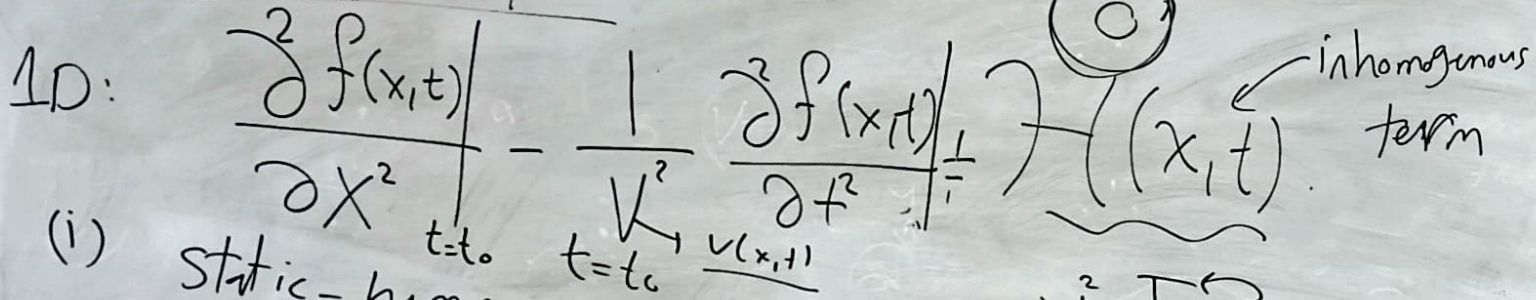 1D: ∂²f(x,t)/∂x² |t=t₀ − 1/V² ∂²f(x,t)/∂t² |t=t₀ = H(x,t). ← inhomogenous term
V(x,t)
(i) static-